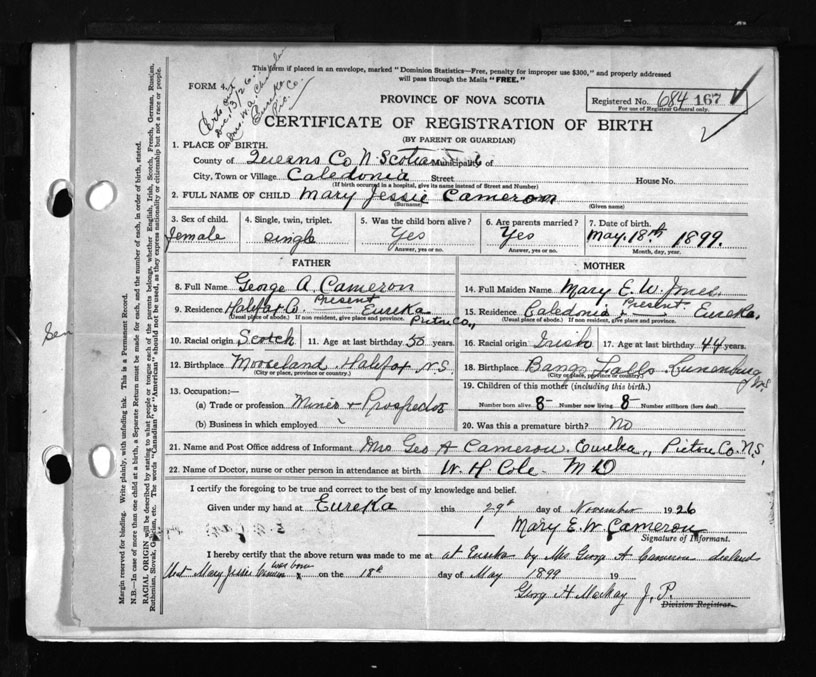 This form if placed in an envelope, marked "Dominion Statistics—Free, penalty for improper use $300," and properly addressed
will pass through the Mails "FREE."
FORM 4.
PROVINCE OF NOVA SCOTIA
Registered No. 684 167
For use of Registrar General only.
CERTIFICATE OF REGISTRATION OF BIRTH
(BY PARENT OR GUARDIAN)
1. PLACE OF BIRTH.
County of Queens Co N. Scotia Municipality of
City, Town or Village Caledonia Street House No.
(If birth occurred in a hospital, give its name instead of Street and Number)
2. FULL NAME OF CHILD Mary Jessie Cameron
(Surname) (Given name)
3. Sex of child. Female
4. Single, twin, triplet. single
5. Was the child born alive? Yes
Answer, yes or no.
6. Are parents married? Yes
Answer, yes or no.
7. Date of birth. May. 18th 1899.
Month, day, year.
FATHER
8. Full Name George A. Cameron
9. Residence Halifax Co. Present Eureka Pictou Co,,
(Usual place of abode.) If non resident, give place and province.
10. Racial origin Scotch 11. Age at last birthday 50 years.
12. Birthplace Mooseland Halifax N.S.
(City or place, province or country.)
13. Occupation:—
(a) Trade or profession Miner + Prospector
(b) Business in which employed
MOTHER
14. Full Maiden Name Mary E. W.
15. Residence Caledonia Present Eureka.
(Usual place of abode.) If non resident, give place and province.
16. Racial origin Irish 17. Age at last birthday 44 years.
18. Birthplace Bangs Falls Lunenburg NS
(City or place, province or country.)
19. Children of this mother (including this birth.)
Number born alive 8 Number now living 8 Number stillborn (born dead)
20. Was this a premature birth? No
21. Name and Post Office address of Informant Mrs Geo A Cameron. Eureka,, Pictou Co. N.S.
22. Name of Doctor, nurse or other person in attendance at birth W. H Cole. M D
I certify the foregoing to be true and correct to the best of my knowledge and belief.
Given under my hand at Eureka this 29th day of November 1926
Mary E. W. Cameron
Signature of Informant.
I hereby certify that the above return was made to me at at Eureka by Mrs George A Cameron
that Mary Jessie Cameron was born on the 18th day of May 1899 19
George H Mackay J. P.
Division Registrar.
Margin reserved for binding. Write plainly, with unfading ink. This is a Permanent Record.
N.B.—In case of more than one child at a birth, a Separate Return must be made for each, and the number of each, in order of birth, stated.
RACIAL ORIGIN will be described by stating to what people or tongue each of the parents belongs, whether English, Irish, Scotch, French, German, Russian,
Ruthenian, Slovak, Galician, etc. The words "Canadian" or "American" should not be used, as they express nationality or citizenship but not a race or people.